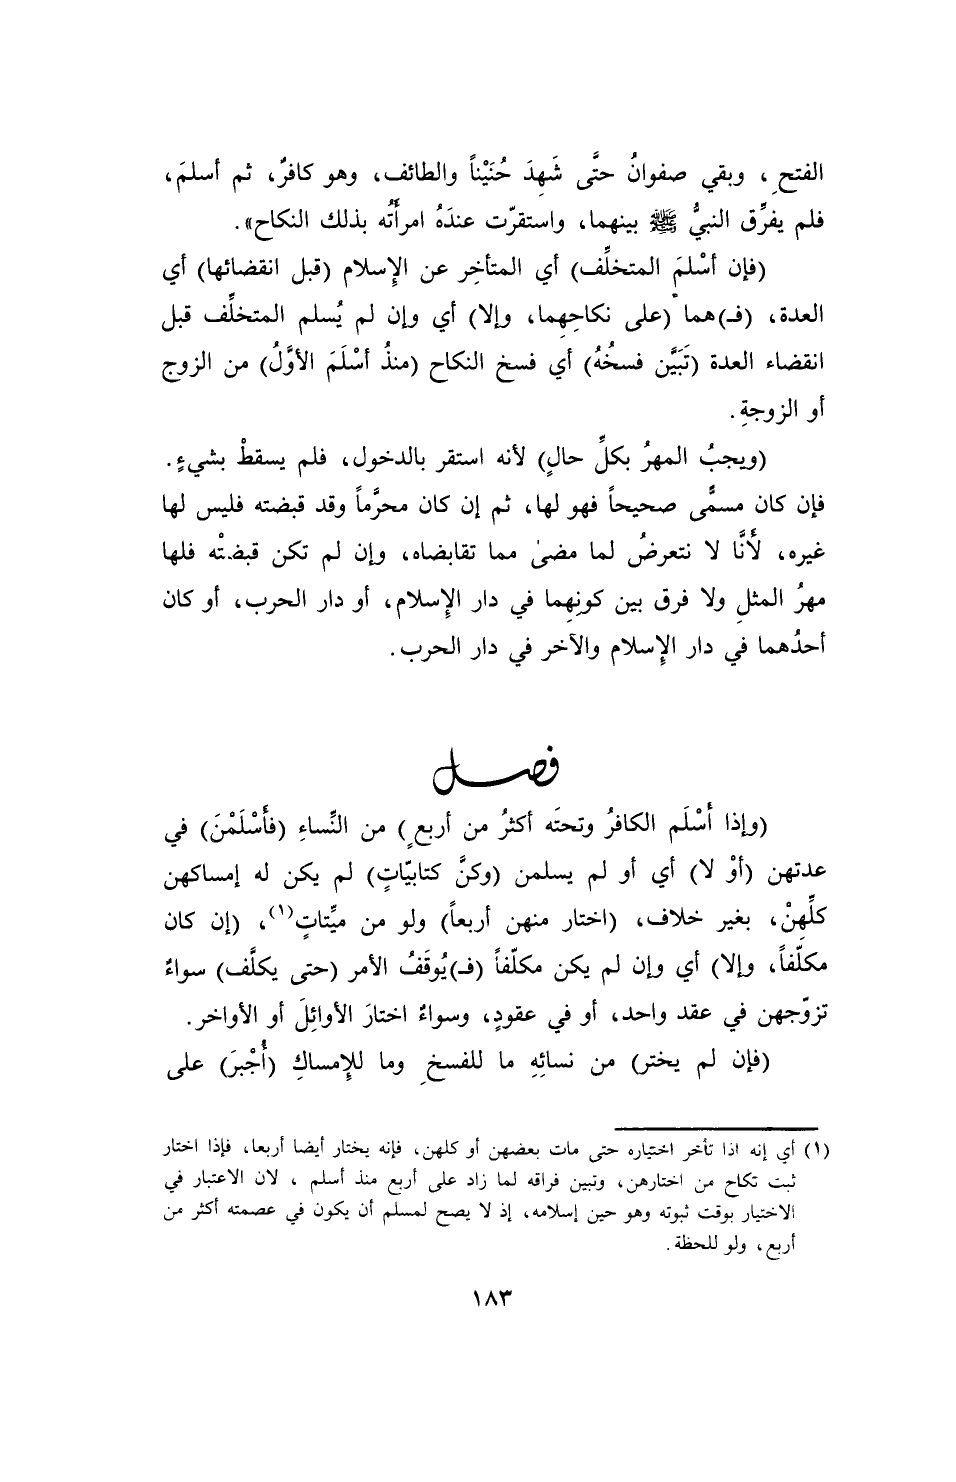 الفتحِ، وبقي صفوانُ حتَّى شَهِدَ حُنَيْناً والطائف، وهو كافرٌ، ثم أسلمَ،
فلم يفرِّق النبيُّ ﷺ بينهما، واستقرّت عندَهُ امرأَتُه بذلك النكاح».
(فإن أسْلمَ المتخلِّف) أي المتأخِر عن الإِسلام (قبل انقضائها) أي
العدة، (فـ)هما (على نكاحِهِما، وإلا) أي وإن لم يُسلم المتخلِّف قبل
انقضاء العدة (تَبَيَّن فسخُهُ) أي فسخ النكاح (منذُ أسْلَمَ الأوَّلُ) من الزوج
أو الزوجةِ.
(ويجبُ المهرُ بكلِّ حالٍ) لأنه استقر بالدخول، فلم يسقطْ بشيءٍ.
فإن كان مسمًّى صحيحاً فهو لها، ثم إن كان محرَّماً وقد قبضته فليس لها
غيره، لأَنَّا لا نتعرضُ لما مضىٰ مما تقابضاه، وإن لم تكن قبضتْه فلها
مهرُ المثلِ ولا فرق بين كونِهِما في دار الإِسلام، أو دار الحرب، أو كان
أحدُهما في دار الإِسلام والآخر في دار الحرب.
فصل
(وإذا أَسْلَم الكافرُ وتحتَه أكثرُ من أربعٍ) من النِّساءِ (فأَسْلَمْنَ) في
عدتهن (أوْ لا) أي أو لم يسلمن (وكنَّ كتابيّاتٍ) لم يكن له إمساكهن
كلِّهِنْ، بغير خلاف، (اختار منهن أربعاً) ولو من ميِّتاتٍ(١)، (إن كان
مكلّفاً، وإلا) أي وإن لم يكن مكلّفاً (فـ)يُوقَفُ الأمر (حتى يكلَّف) سواءً
تزوّجهن في عقد واحد، أو في عقودٍ، وسواءً اختارَ الأوائِلَ أو الأواخر.
(فإن لم يختر) من نسائِهِ ما للفسخِ وما للإِمساكِ (أُجْبرَ) على
(١) أي إنه اذا تأخر اختياره حتى مات بعضهن أو كلهن، فإنه يختار أيضا أربعا، فإذا اختار
ثبت تكاح من اختارهن، وتبين فراقه لما زاد على أربع منذ أسلم ، لان الاعتبار في
الاختيار بوقت ثبوته وهو حين إسلامه، إذ لا يصح لمسلم أن يكون في عصمته أكثر من
أربع، ولو للحظة.
١٨٣